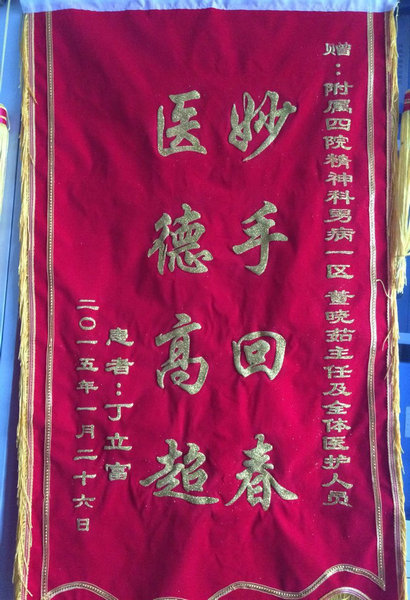 赠：附属四院精神科男病一区 董晓茹主任及全体医护人员
妙手回春
医德高超
患者：丁立富
二〇一五年一月二十六日